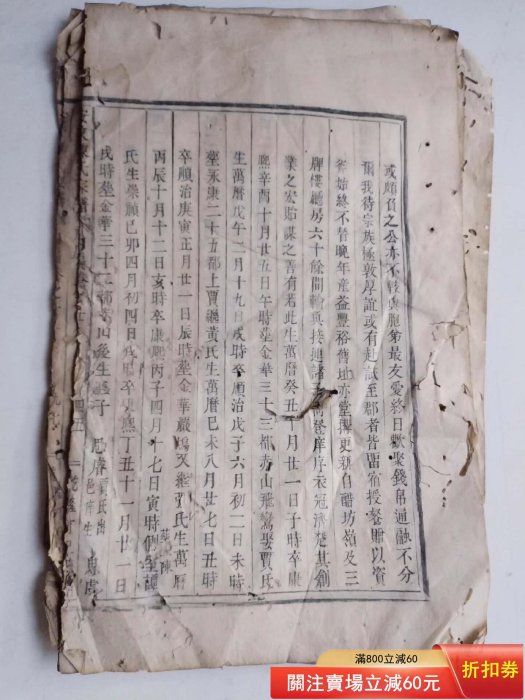 或頗負之公亦不較與胞弟最友愛終日歡聚錢帛通融不分
爾我待宗族極敦厚誼或有赴試至郡者皆留宿授餐贈以資
斧始終不替晚年產益豐裕舊地亦堂搆更新自醋坊嶺及三
牌樓廳房六十餘間輪奐接連諸子
登庠序衣冠濟楚其創
業之宏貽謀之善有若此生萬曆癸丑十月廿一日子時卒康
熙辛酉十月廿五日午時塟金華三十三都赤山飛鸞娶賈氏
生萬曆戊午二月十九日戌時卒順治戊子六月初二日未時
塟永康二十五都上賈
黃氏生萬曆己未八月廿七日丑時
卒順治庚寅正月廿一日辰時塟金華嚴
又繼
氏生萬曆
丙辰十月十二日亥時卒康熙丙子四月十七日寅時側室陳
氏生崇禎己卯四月初四日戌時卒康熙丁丑十一月廿一日
氏時塟金華三十三都
山
生
子
賈氏出
邑庠生
滿800立減60
關注賣場立減60元
折扣券